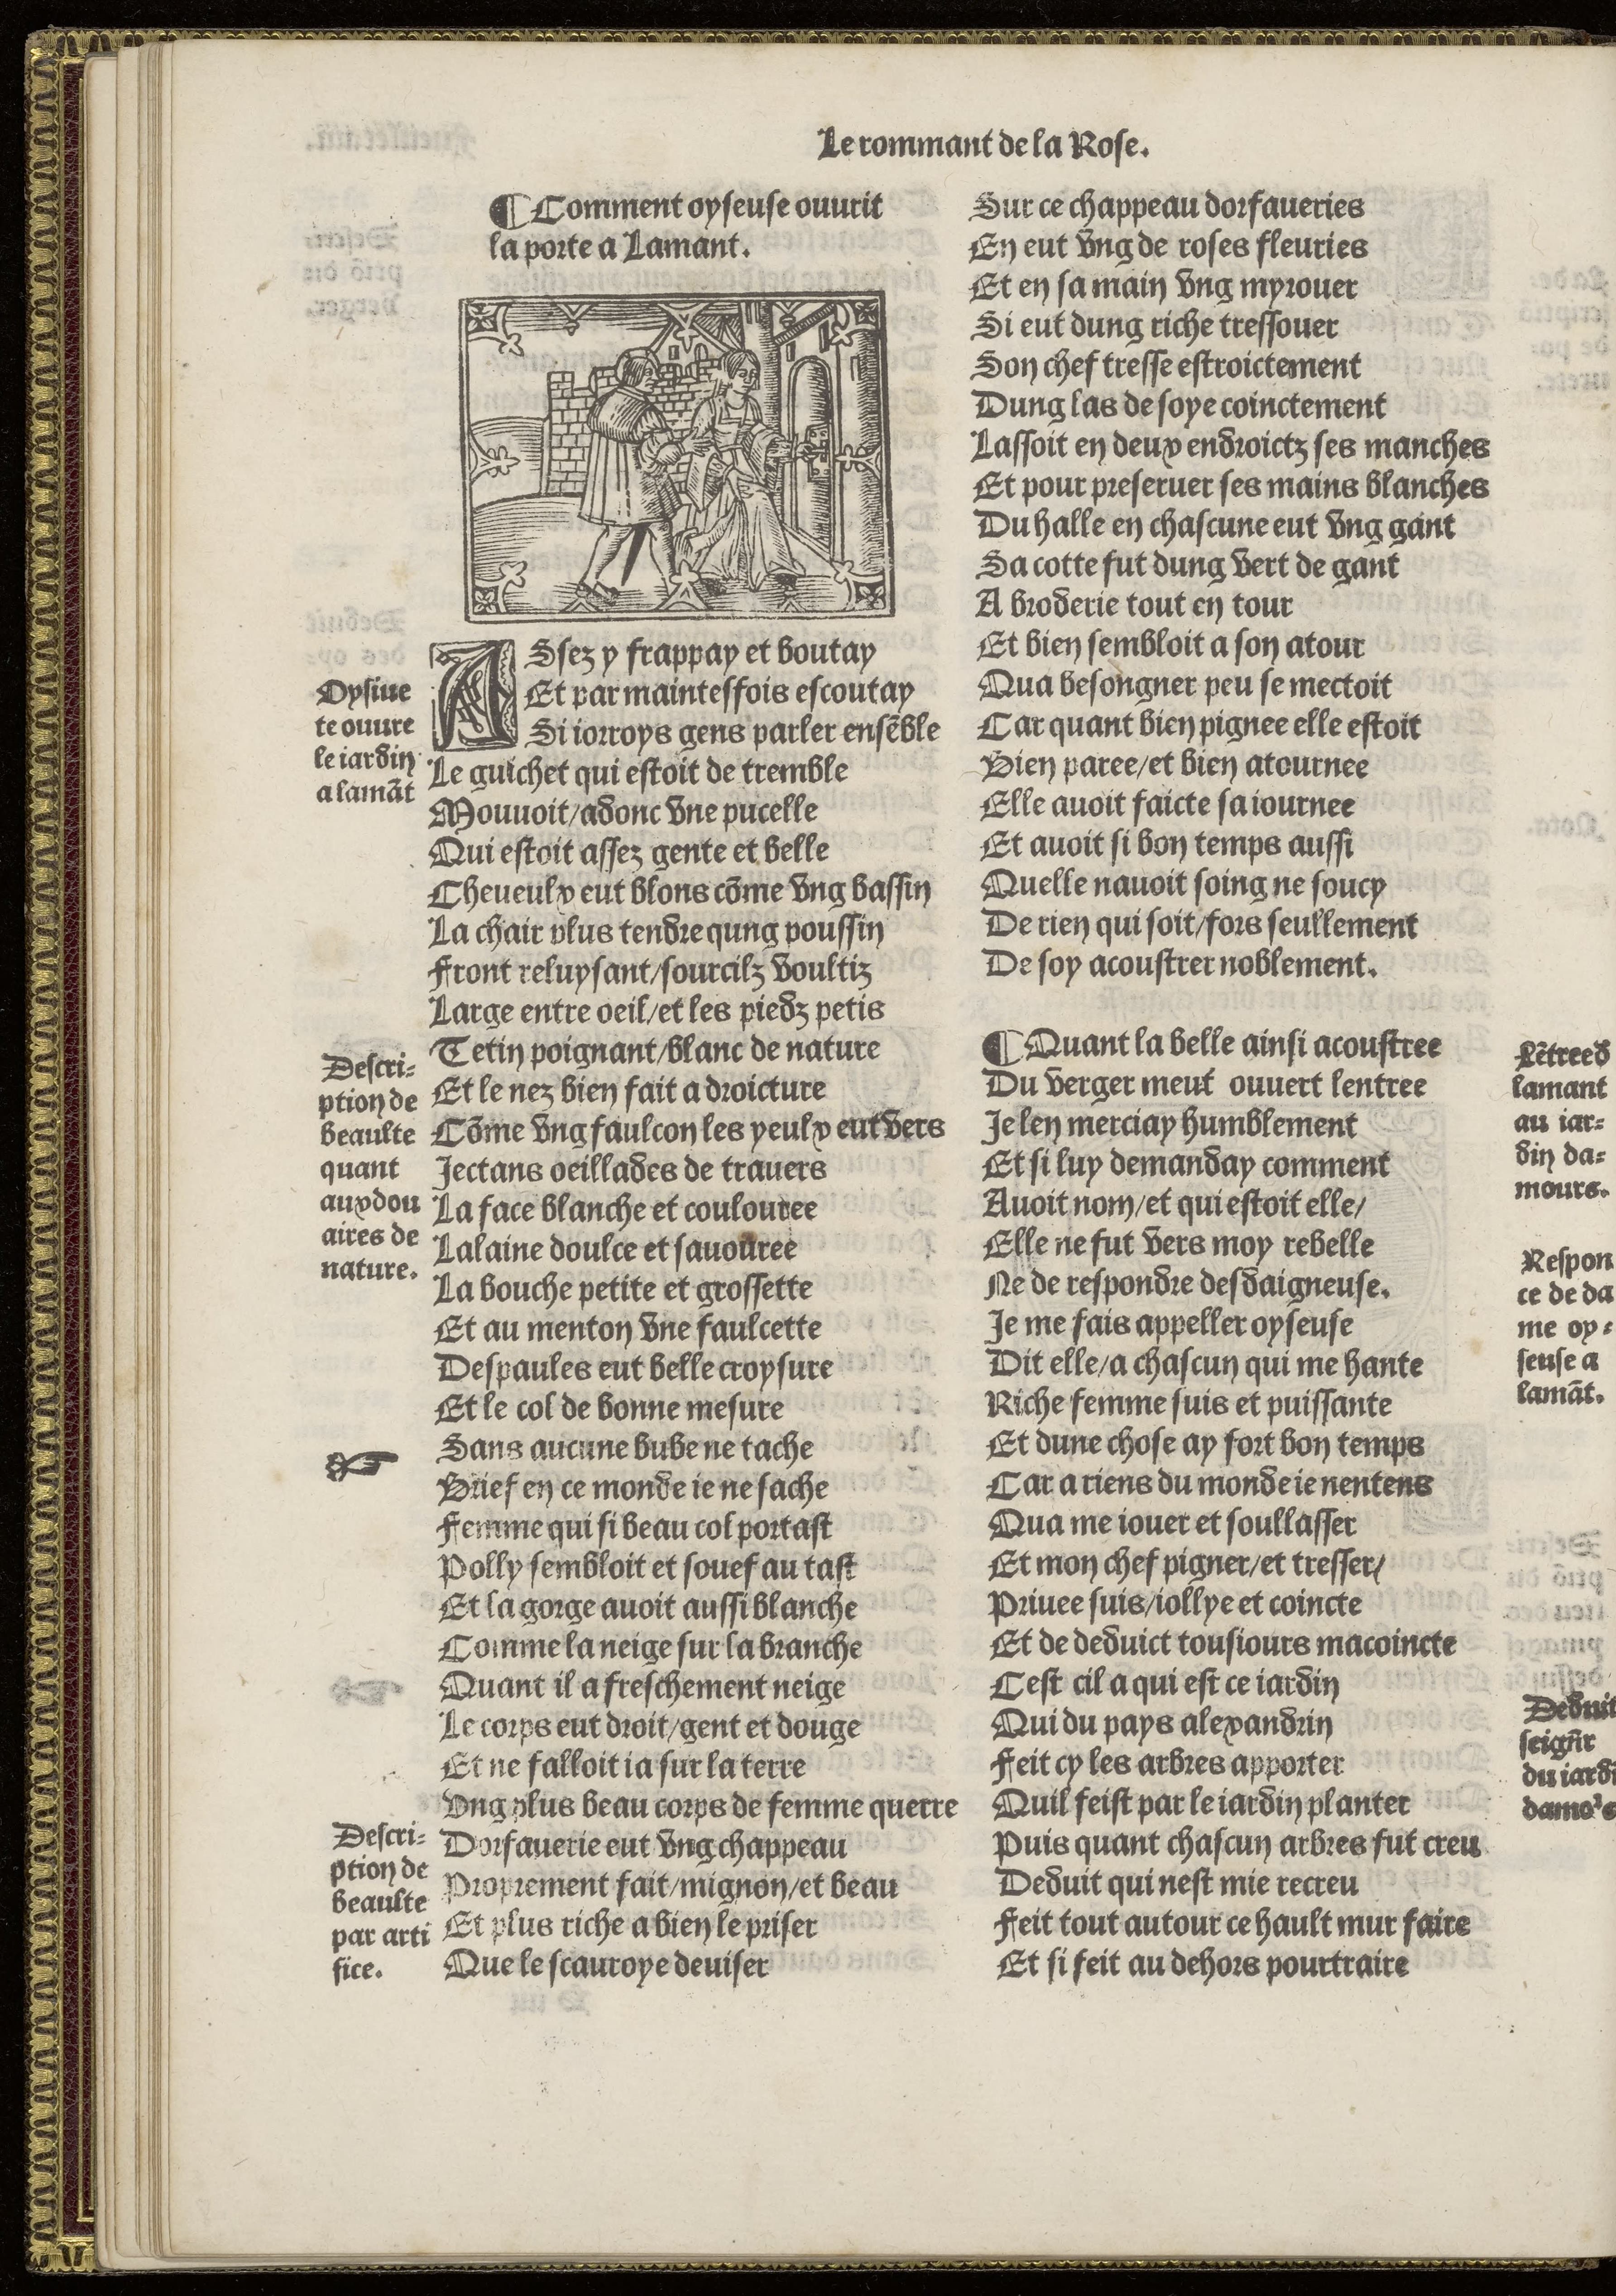 Le rommant de la Rose.
¶ Comment oyseuse ouurit
la porte a Lamant.
ASsez y frappay et boutay
Et par maintesfois escoutay
Si iorroys gens parler ensẽble
Le guichet qui estoit de tremble
Mouuoit/adonc vne pucelle
Qui estoit assez gente et belle
Cheueulx eut blons cõme vng bassin
La chair plus tendre qung poussin
Front reluysant/sourcilz voultiz
Large entre oeil/et les piedz petis
Tetin poignant/blanc de nature
Et le nez bien fait a droicture
Cõme vng faulcon les yeulx eut vers
Jectans oeillades de trauers
La face blanche et coulouree
Lalaine doulce et sauouree
La bouche petite et grossette
Et au menton vne faulcette
Despaules eut belle croysure
Et le col de bonne mesure
Sans aucune bube ne tache
Brief en ce monde ie ne sache
Femme qui si beau col portast
Polly sembloit et souef au tast
Et la gorge auoit aussi blanche
Comme la neige sur la branche
Quant il a freschement neige
Le corps eut droit/gent et douge
Et ne falloit ia sur la terre
Vng plus beau corps de femme querre
Dorfauerie eut vng chappeau
Proprement fait/mignon/et beau
Et plus riche a bien le priser
Que le scauroye deuiser
Oysiue
te ouure
le iardin
a lamãt
Descri-
ption de
beaulte
quant
aux dou
aires de
nature.
Descri-
ption de
beaulte
par arti
fice.
Sur ce chappeau dorfaueries
En eut vng de roses fleuries
Et en sa main vng myrouer
Si eut dung riche tressouer
Son chef tresse estroictement
Dung las de soye coinctement
Lassoit en deux endroictz ses manches
Et pour preseruer ses mains blanches
Du halle en chascune eut vng gant
Sa cotte fut dung vert de gant
A broderie tout en tour
Et bien sembloit a son atour
Qua besongner peu se mectoit
Car quant bien pignee elle estoit
Bien paree/et bien atournee
Elle auoit faicte sa iournee
Et auoit si bon temps aussi
Quelle nauoit soing ne soucy
De rien qui soit/fors seullement
De soy acoustrer noblement.
¶ Quant la belle ainsi acoustree
Du verger meut ouuert lentree
Je len merciay humblement
Et si luy demanday comment
Auoit nom/et qui estoit elle/
Elle ne fut vers moy rebelle
Ne de respondre desdaigneuse.
Je me fais appeller oyseuse
Dit elle/a chascun qui me hante
Riche femme suis et puissante
Et dune chose ay fort bon temps
Car a riens du monde ie nentens
Qua me iouer et soullasser
Et mon chef pigner/et tresser/
Priuee suis/iollye et coincte
Et de deduict tousiours macoincte
Cest cil a qui est ce iardin
Qui du pays alexandrin
Feit cy les arbres apporter
Quil feist par le iardin planter
Puis quant chascun arbres fut creu
Deduit qui nest mie recreu
Feit tout autour ce hault mur faire
Et si feit au dehors pourtraire
Lẽtree d
lamant
au iar-
din da-
mours.
Respon
ce de da
me oy-
seuse a
lamãt.
Deduit
seigñr
du iardi
damo's